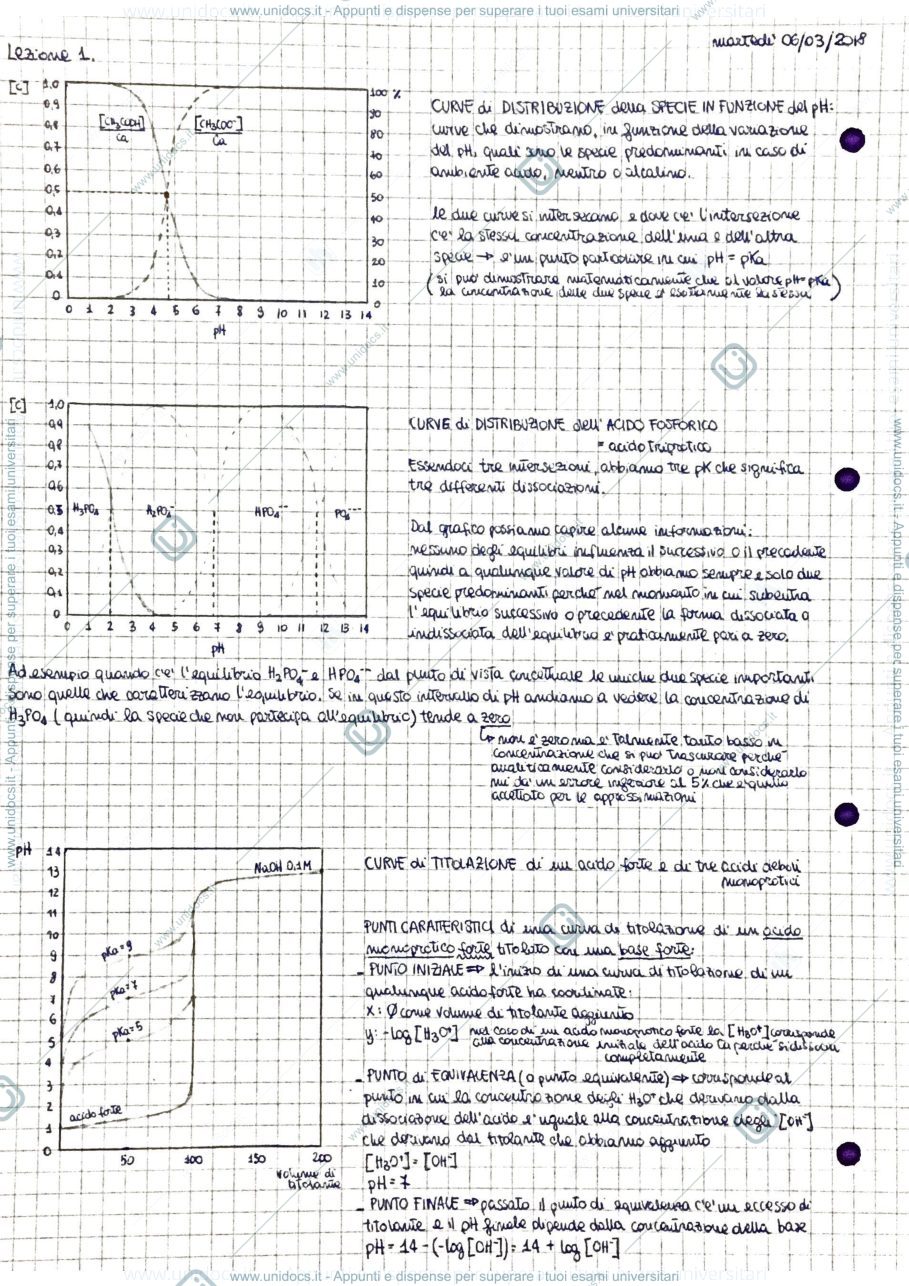 www.unidocs.it - Appunti e dispense per superare i tuoi esami universitari
martedi' 06/03/2018
Lezione 1.
[C]
1,0
0,9
0,8
0,7
0,6
0,5
0,4
0,3
0,2
0,1
0
[CH3COOH]
Ca
[CH3COO-]
Ca
100 %
90
80
70
60
50
40
30
20
10
0
0 1 2 3 4 5 6 7 8 9 10 11 12 13 14
pH
CURVE di DISTRIBUZIONE della SPECIE IN FUNZIONE del pH:
curve che dimostrano, in funzione della variazione
del pH, quali sono le specie predominanti in caso di
ambiente acido, neutro o alcalino.
le due curve si intersecano e dove c'e' l'intersezione
c'e' la stessa concentrazione dell'una e dell'altra
specie → e' un punto particolare in cui pH = pKa
(si puo' dimostrare matematicamente che al valore pH= pKa)
la concentrazione delle due specie e' esattamente la stessa
[C]
1,0
0,9
0,8
0,7
0,6
0,5
0,4
0,3
0,2
0,1
0
H3PO4
H2PO4-
HPO4--
PO4---
0 1 2 3 4 5 6 7 8 9 10 11 12 13 14
pH
CURVE di DISTRIBUZIONE dell'ACIDO FOSFORICO
= acido triprotico
Essendoci tre intersezioni, abbiamo tre pK che significa
tre differenti dissociazioni.
Dal grafico possiamo capire alcune informazioni:
nessuno degli equilibri influenza il successivo o il precedente
quindi a qualunque valore di pH abbiamo sempre e solo due
specie predominanti perche' nel momento in cui subentra
l'equilibrio successivo o precedente la forma dissociata o
indissociata dell'equilibrio e' praticamente pari a zero.
Ad esempio quando c'e' l'equilibrio H2PO4- e HPO4-- dal punto di vista concettuale le uniche due specie importanti
sono quelle che caratterizzano l'equilibrio. Se in questo intervallo di pH andiamo a vedere la concentrazione di
H3PO4 (quindi la specie che non partecipa all'equilibrio) tende a zero
↳ non e' zero ma e' talmente tanto basso in
concentrazione che si puo' trascurare perche'
analiticamente considerarlo o non considerarlo
mi da' un errore inferiore al 5% che e' quello
accettato per le approssimazioni
pH
14
13
12
11
10
9
8
7
6
5
4
3
2
1
0
NaOH 0,1M
pKa=9
pKa=7
pKa=5
acido forte
50 100 150 200
volume di
titolante
CURVE di TITOLAZIONE di un acido forte e di tre acidi deboli
monoprotici
PUNTI CARATTERISTICI di una curva di titolazione di un acido
monoprotico forte titolato con una base forte:
- PUNTO INIZIALE ⇒ l'inizio di una curva di titolazione di un
qualunque acido forte ha coordinate:
x: Ø come volume di titolante aggiunto
y: -log[H3O+] nel caso di un acido monoprotico forte la [H3O+] corrisponde
alla concentrazione iniziale dell'acido Ca perche' si dissocia
completamente
- PUNTO di EQUIVALENZA (o punto equivalente) ⇒ corrisponde al
punto in cui la concentrazione degli H3O+ che derivano dalla
dissociazione dell'acido e' uguale alla concentrazione degli [OH-]
che derivano dal titolante che abbiamo aggiunto
[H3O+] = [OH-]
pH = 7
- PUNTO FINALE ⇒ passato il punto di equivalenza c'e' un eccesso di
titolante e il pH finale dipende dalla concentrazione della base
pH = 14 - (-log[OH-]) = 14 + log[OH-]
www.unidocs.it - Appunti e dispense per superare i tuoi esami universitari